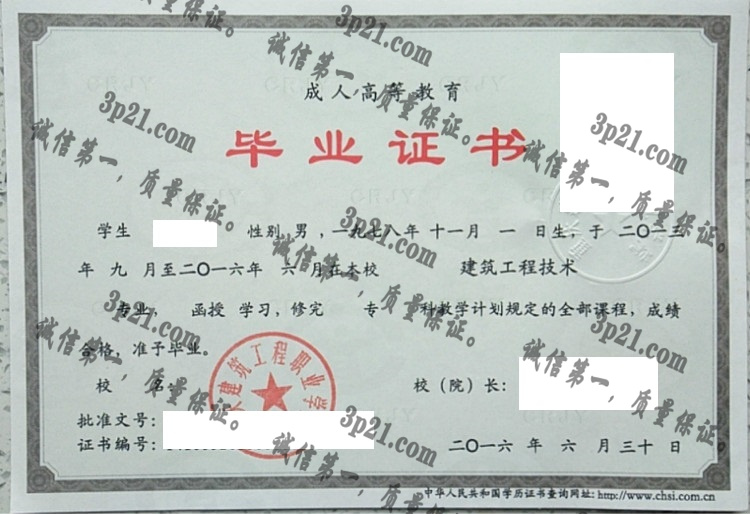 成人高等教育
毕业证书
学生 性别 男 ,一九七八年 十一月 一 日生,于 二〇一三
年 九 月至二〇一六年 六 月在本校 建筑工程技术
专业, 函授 学习,修完 专 科教学计划规定的全部课程,成绩
合格,准予毕业。
校 名: 校(院)长:
建筑工程职业学
批准文号:
证书编号:
二〇一六 年 六 月 三十 日
中华人民共和国学历证书查询网址: http://www.chsi.com.cn
3p21.com
诚信第一,质量保证。
3p21.com
诚信第一,质量保证。
3p21.com
诚信第一,质量保证。
3p21.com
诚信第一,质量保证。
3p21.com
诚信第一,质量保证。
3p21.com
诚信第一,质量保证。
3p21.com
诚信第一,质量保证。